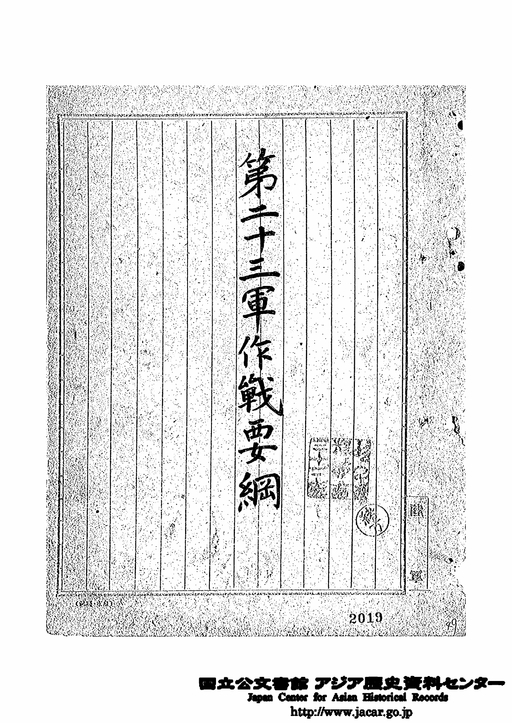 第二十三軍作戰要綱
陸軍
2019
国立公文書館 アジア歴史資料センター
Japan Center for Asian Historical Records
http://www.jacar.go.jp